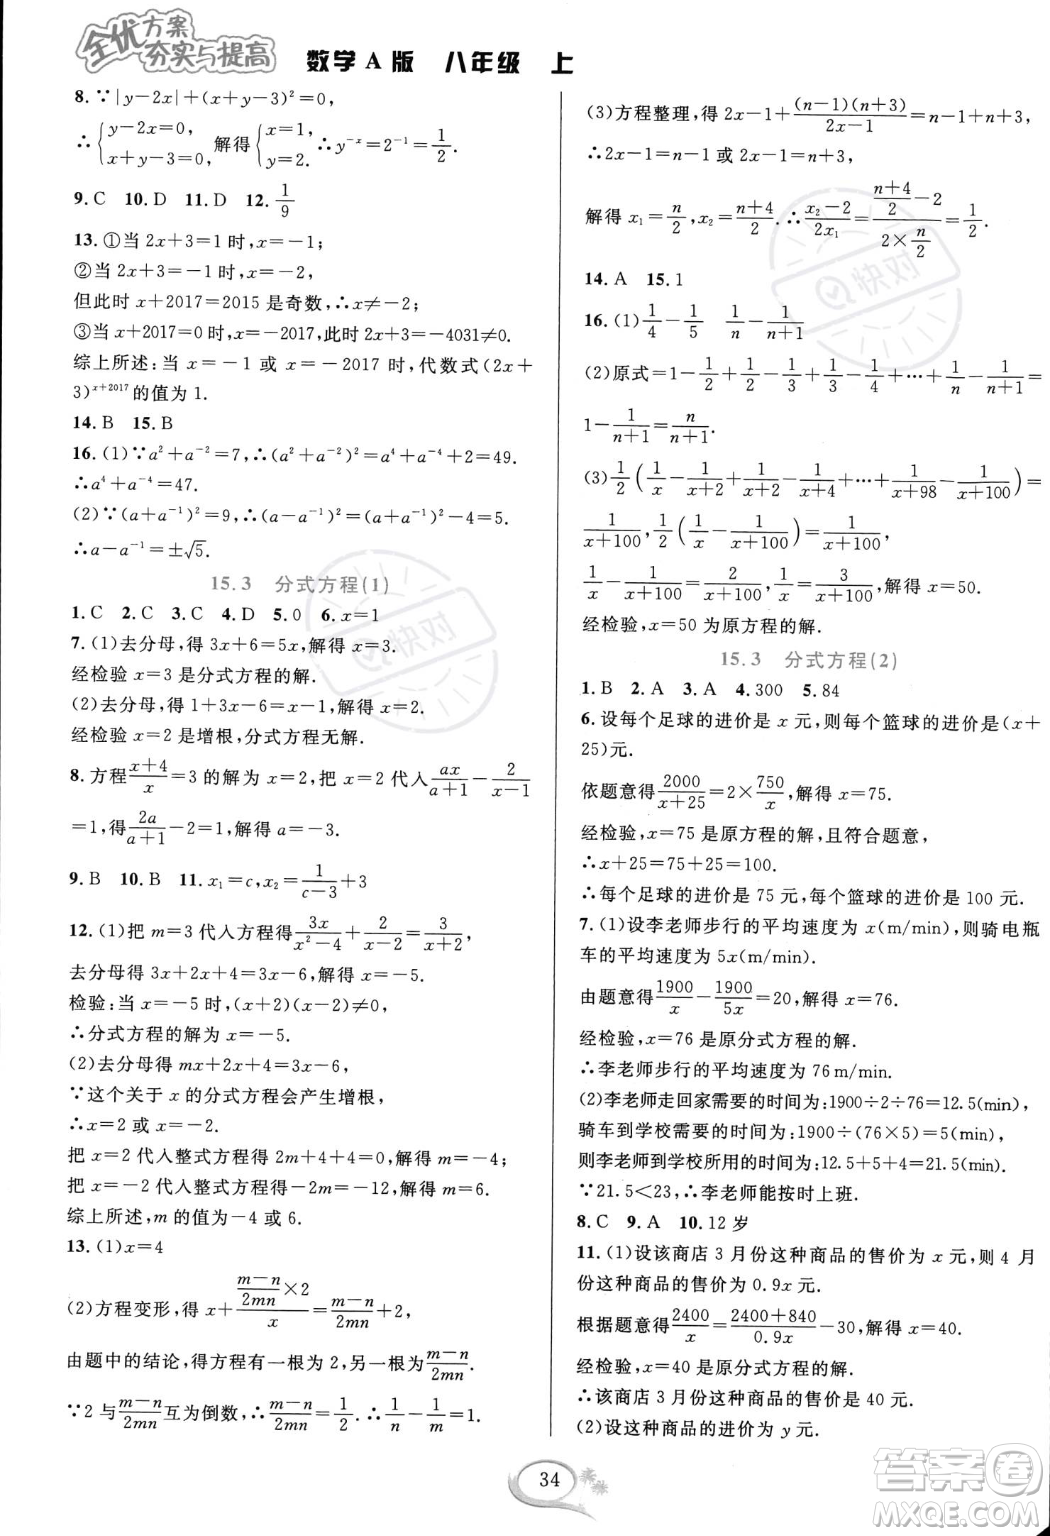 全优方案
夯实与提高
数学A版 八年级 上
8.∵|y−2x|+(x+y−3)²=0,
∴{y−2x=0, x+y−3=0, 解得{x=1, y=2. ∴y⁻ˣ=2⁻¹=1/2.
9.C 10.D 11.D 12.1/9
13.①当2x+3=1时,x=−1;
②当2x+3=−1时,x=−2,
但此时x+2017=2015是奇数,∴x≠−2;
③当x+2017=0时,x=−2017,此时2x+3=−4031≠0.
综上所述:当x=−1或x=−2017时,代数式(2x+
3)ˣ⁺²⁰¹⁷的值为1.
14.B 15.B
16.(1)∵a²+a⁻²=7,∴(a²+a⁻²)²=a⁴+a⁻⁴+2=49.
∴a⁴+a⁻⁴=47.
(2)∵(a+a⁻¹)²=9,∴(a−a⁻¹)²=(a+a⁻¹)²−4=5.
∴a−a⁻¹=±√5.
15.3 分式方程(1)
1.C 2.C 3.C 4.D 5.0 6.x=1
7.(1)去分母,得3x+6=5x,解得x=3.
经检验x=3是分式方程的解.
(2)去分母,得1+3x−6=x−1,解得x=2.
经检验x=2是增根,分式方程无解.
8.方程(x+4)/x=3的解为x=2,把x=2代入ax/(a+1)−2/(x−1)
=1,得2a/(a+1)−2=1,解得a=−3.
9.B 10.B 11.x₁=c,x₂=1/(c−3)+3
12.(1)把m=3代入方程得3x/(x²−4)+2/(x−2)=3/(x+2),
去分母得3x+2x+4=3x−6,解得x=−5.
检验:当x=−5时,(x+2)(x−2)≠0,
∴分式方程的解为x=−5.
(2)去分母得mx+2x+4=3x−6,
∵这个关于x的分式方程会产生增根,
∴x=2或x=−2.
把x=2代入整式方程得2m+4+4=0,解得m=−4;
把x=−2代入整式方程得−2m=−12,解得m=6.
综上所述,m的值为−4或6.
13.(1)x=4
(2)方程变形,得x+((m−n)/2mn×2)/x=(m−n)/2mn+2,
由题中的结论,得方程有一根为2,另一根为(m−n)/2mn.
∵2与(m−n)/2mn互为倒数,∴(m−n)/2mn=1/2.∴1/n−1/m=1.
(3)方程整理,得2x−1+(n−1)(n+3)/(2x−1)=n−1+n+3,
∴2x−1=n−1或2x−1=n+3,
解得x₁=n/2,x₂=(n+4)/2.∴(x₂−2)/2x₁=((n+4)/2−2)/(2×n/2)=1/2.
14.A 15.1
16.(1)1/4−1/5 1/n−1/(n+1)
(2)原式=1−1/2+1/2−1/3+1/3−1/4+…+1/n−1/(n+1)=
1−1/(n+1)=n/(n+1).
(3)1/2(1/x−1/(x+2)+1/(x+2)−1/(x+4)+…+1/(x+98)−1/(x+100))=
1/(x+100),1/2(1/x−1/(x+100))=1/(x+100),
1/x−1/(x+100)=2/(x+100),1/x=3/(x+100),解得x=50.
经检验,x=50为原方程的解.
15.3 分式方程(2)
1.B 2.A 3.A 4.300 5.84
6.设每个足球的进价是x元,则每个篮球的进价是(x+
25)元.
依题意得2000/(x+25)=2×750/x,解得x=75.
经检验,x=75是原方程的解,且符合题意,
∴x+25=75+25=100.
∴每个足球的进价是75元,每个篮球的进价是100元.
7.(1)设李老师步行的平均速度为x(m/min),则骑电瓶
车的平均速度为5x(m/min).
由题意得1900/x−1900/5x=20,解得x=76.
经检验,x=76是原分式方程的解.
∴李老师步行的平均速度为76m/min.
(2)李老师走回家需要的时间为:1900÷2÷76=12.5(min),
骑车到学校需要的时间为:1900÷(76×5)=5(min),
则李老师到学校所用的时间为:12.5+5+4=21.5(min).
∵21.5<23,∴李老师能按时上班.
8.C 9.A 10.12岁
11.(1)设该商店3月份这种商品的售价为x元,则4月
份这种商品的售价为0.9x元.
根据题意得2400/x=(2400+840)/0.9x−30,解得x=40.
经检验,x=40是原分式方程的解.
∴该商店3月份这种商品的售价是40元.
(2)设这种商品的进价为y元.
34
快对
快对
答案卷
MXQE.COM